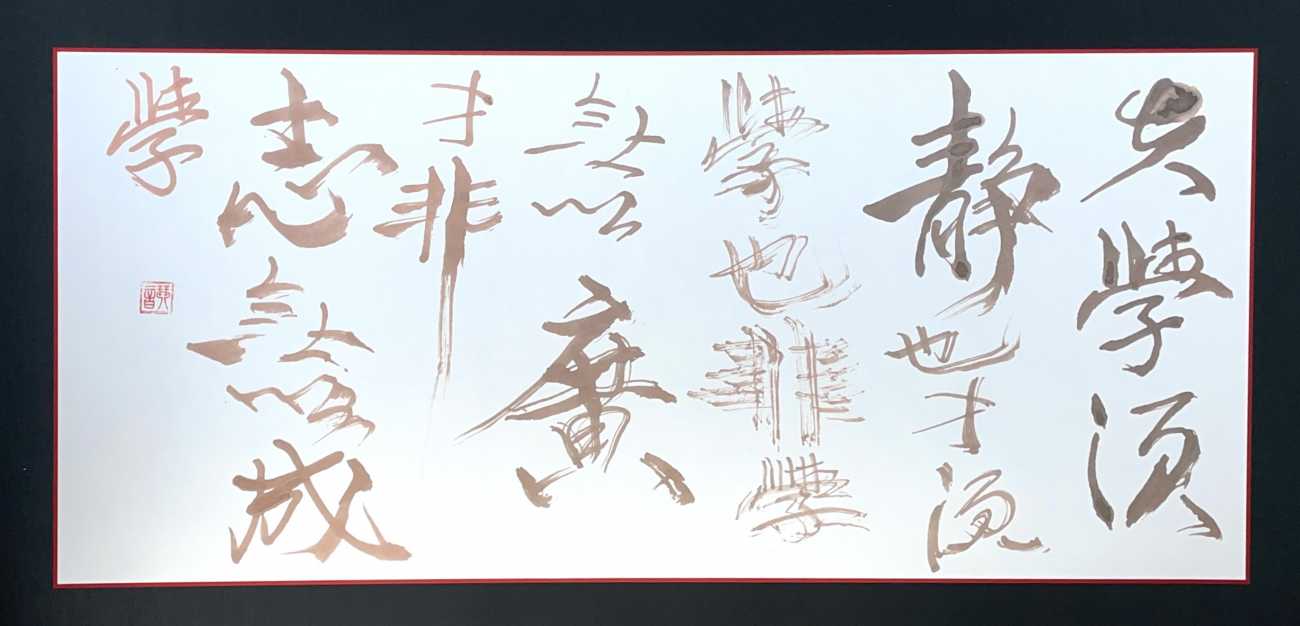 夫學須
静也才須
學也非學
無以廣
才非
志無以成
學